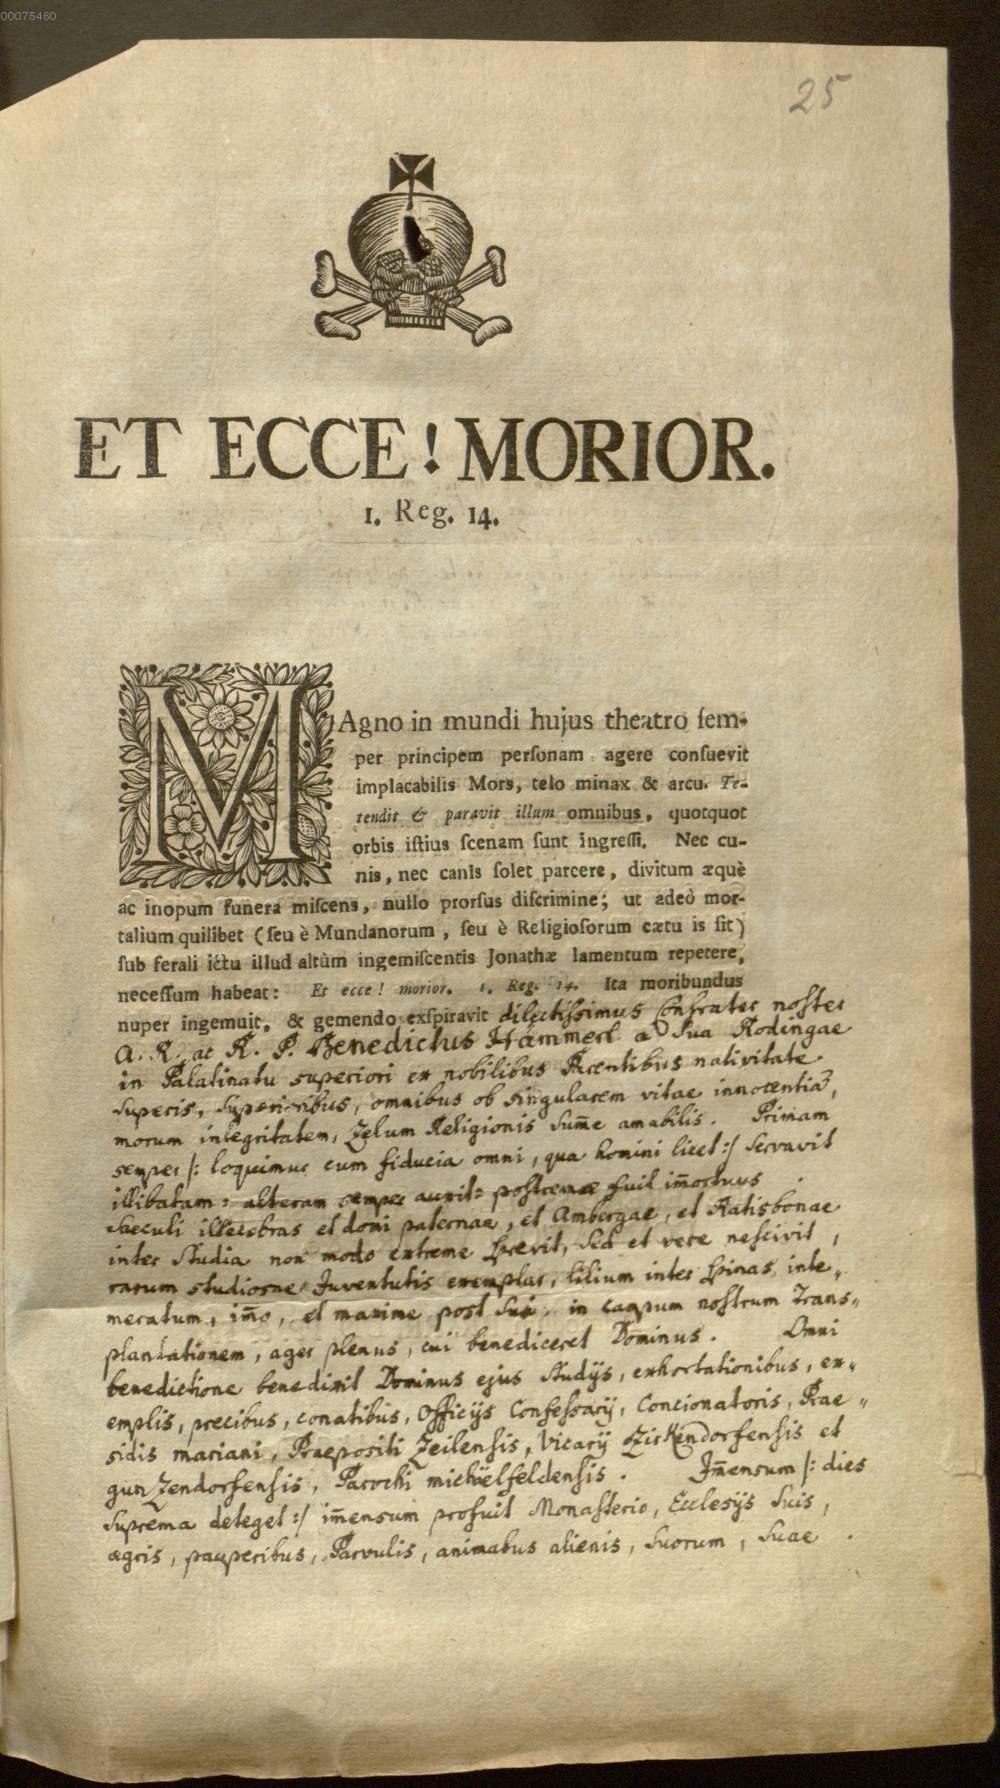 00075460
25
ET ECCE! MORIOR.
1. Reg. 14.
MAgno in mundi hujus theatro ſem-
per principem perſonam agere conſuevit
implacabilis Mors, telo minax & arcu. Te-
tendit & paravit illum omnibus, quotquot
orbis iſtius ſcenam ſunt ingreſſi. Nec cu-
nis, nec canis ſolet parcere, divitum æquè
ac inopum funera miſcens, nullo prorſus diſcrimine; ut adeò mor-
talium quilibet (ſeu è Mundanorum, ſeu è Religioſorum cætu is ſit)
ſub ferali ictu illud altùm ingemiſcentis Jonathæ lamentum repetere,
neceſſum habeat: Et ecce! morior. 1. Reg. 14. Ita moribundus
nuper ingemuit, & gemendo exſpiravit dilectissimus Confrater noster
A. R. ac R. P. Benedictus Hämmerl a Sua Rodingae
in Palatinatu superiori ex nobilibus Parentibus nativitate
superis, superioribus, omnibus ob singularem vitae innocentiã,
morum integritatem, Zelum Religionis Sum̃e amabilis. Primam
semper /: loquimur cum fiducia omni, qua homini licet :/ servavit
illibatam: alteram semper auxit: postremae fuit im̃ortuus
saeculi illecebras et domi paternae, et Ambergae, et Ratisbonae
inter Studia non modo extreme sprevit, sed et vere nescivit,
rarum studiosae Juventutis exemplar, lilium inter spinas inte„
meratum, im̃o, et maxime post Sui in campum nostrum Trans„
plantationem, ager plenus, cui benediceret Dominus. Omni
benedictione benedixit Dominus ejus Studijs, exhortationibus, ex„
emplis, precibus, conatibus, Officijs Confessarij, Concionatoris, Prae„
sidis mariani, Praepositi Zeilensis, Vicarij Zirkendorfensis et
gunzendorfensis, Parochi michaëlfeldensis. Im̃ensum /: dies
Suprema deteget :/ im̃ensum profuit Monasterio, Ecclesijs Suis,
aegris, pauperibus, Parvulis, animabus alienis, Suorum, Suae